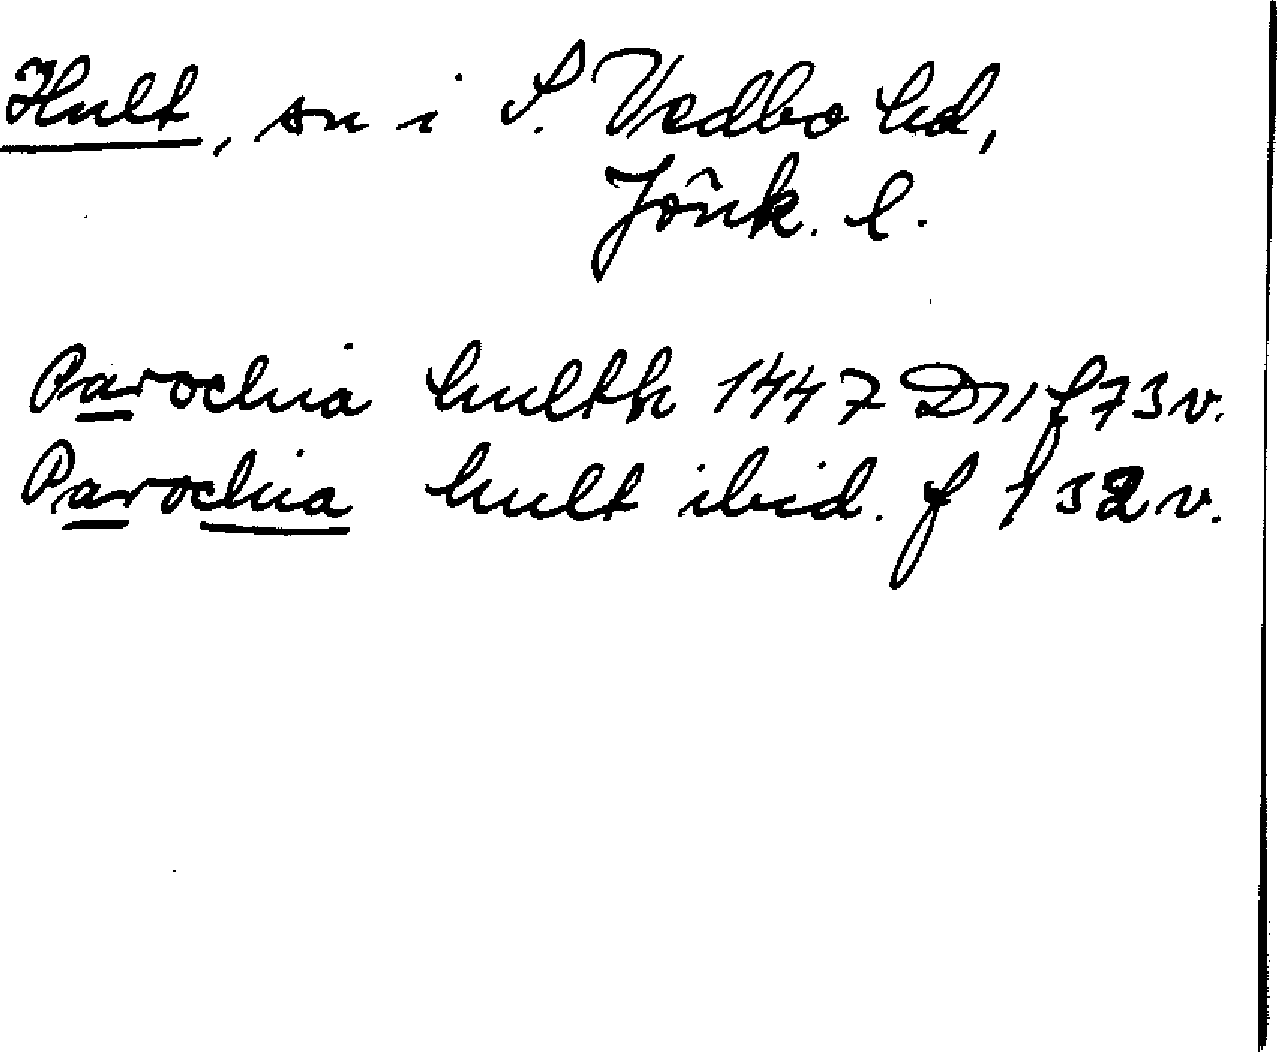 Hult, sn i S. Vedbo hd,
Jönk. l.
Parochia hulth 1447 D 11 f 73 v.
Parochia hult ibid. f 132 v.